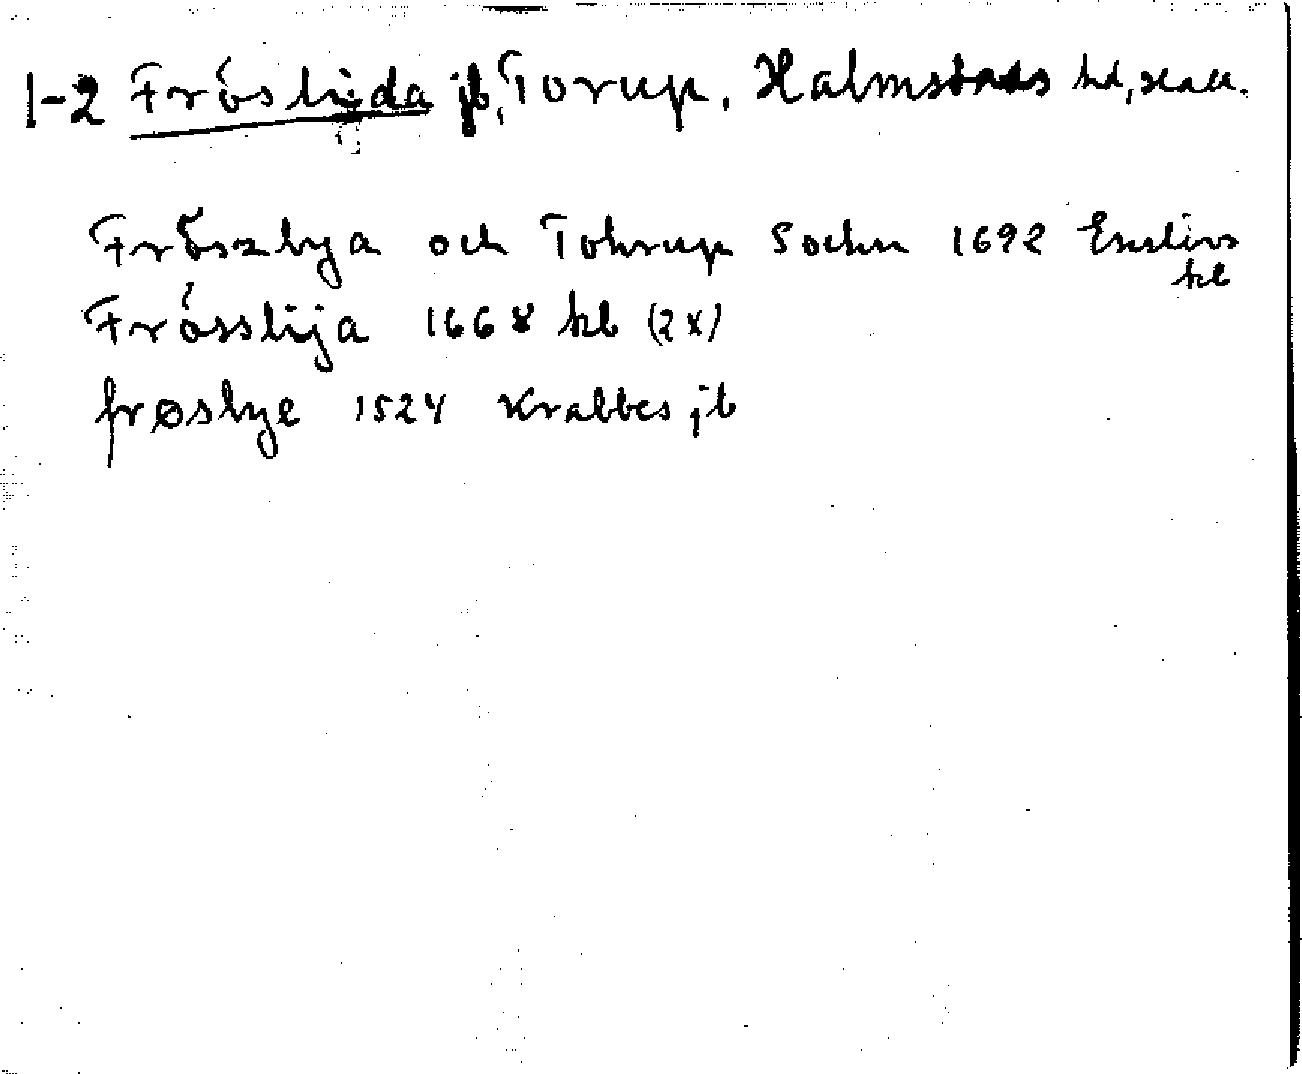 1-2 Fröslida jb, Torup, Halmstads hd, Hall.
Fröszlya och Tohrup Sochn 1692 Enslövs
kb
Frösslija 1668 kb (2x)
frøslye 1524 Krabbes jb